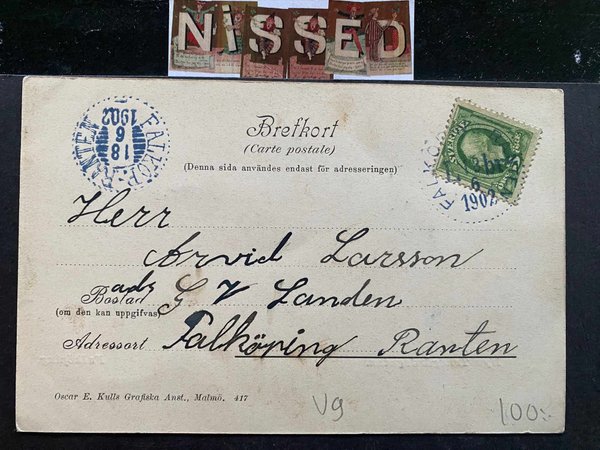 NiSSED
FALKÖP.-RANTEN
18
6
1902
Brefkort
(Carte postale)
(Denna sida användes endast för adresseringen)
1902
Herr
Arvid Larsson
Bostad adr G V Landen
(om den kan uppgifvas)
Adressort Falköping Ranten
Oscar E. Kulls Grafiska Anst., Malmö. 417
V9
100:-